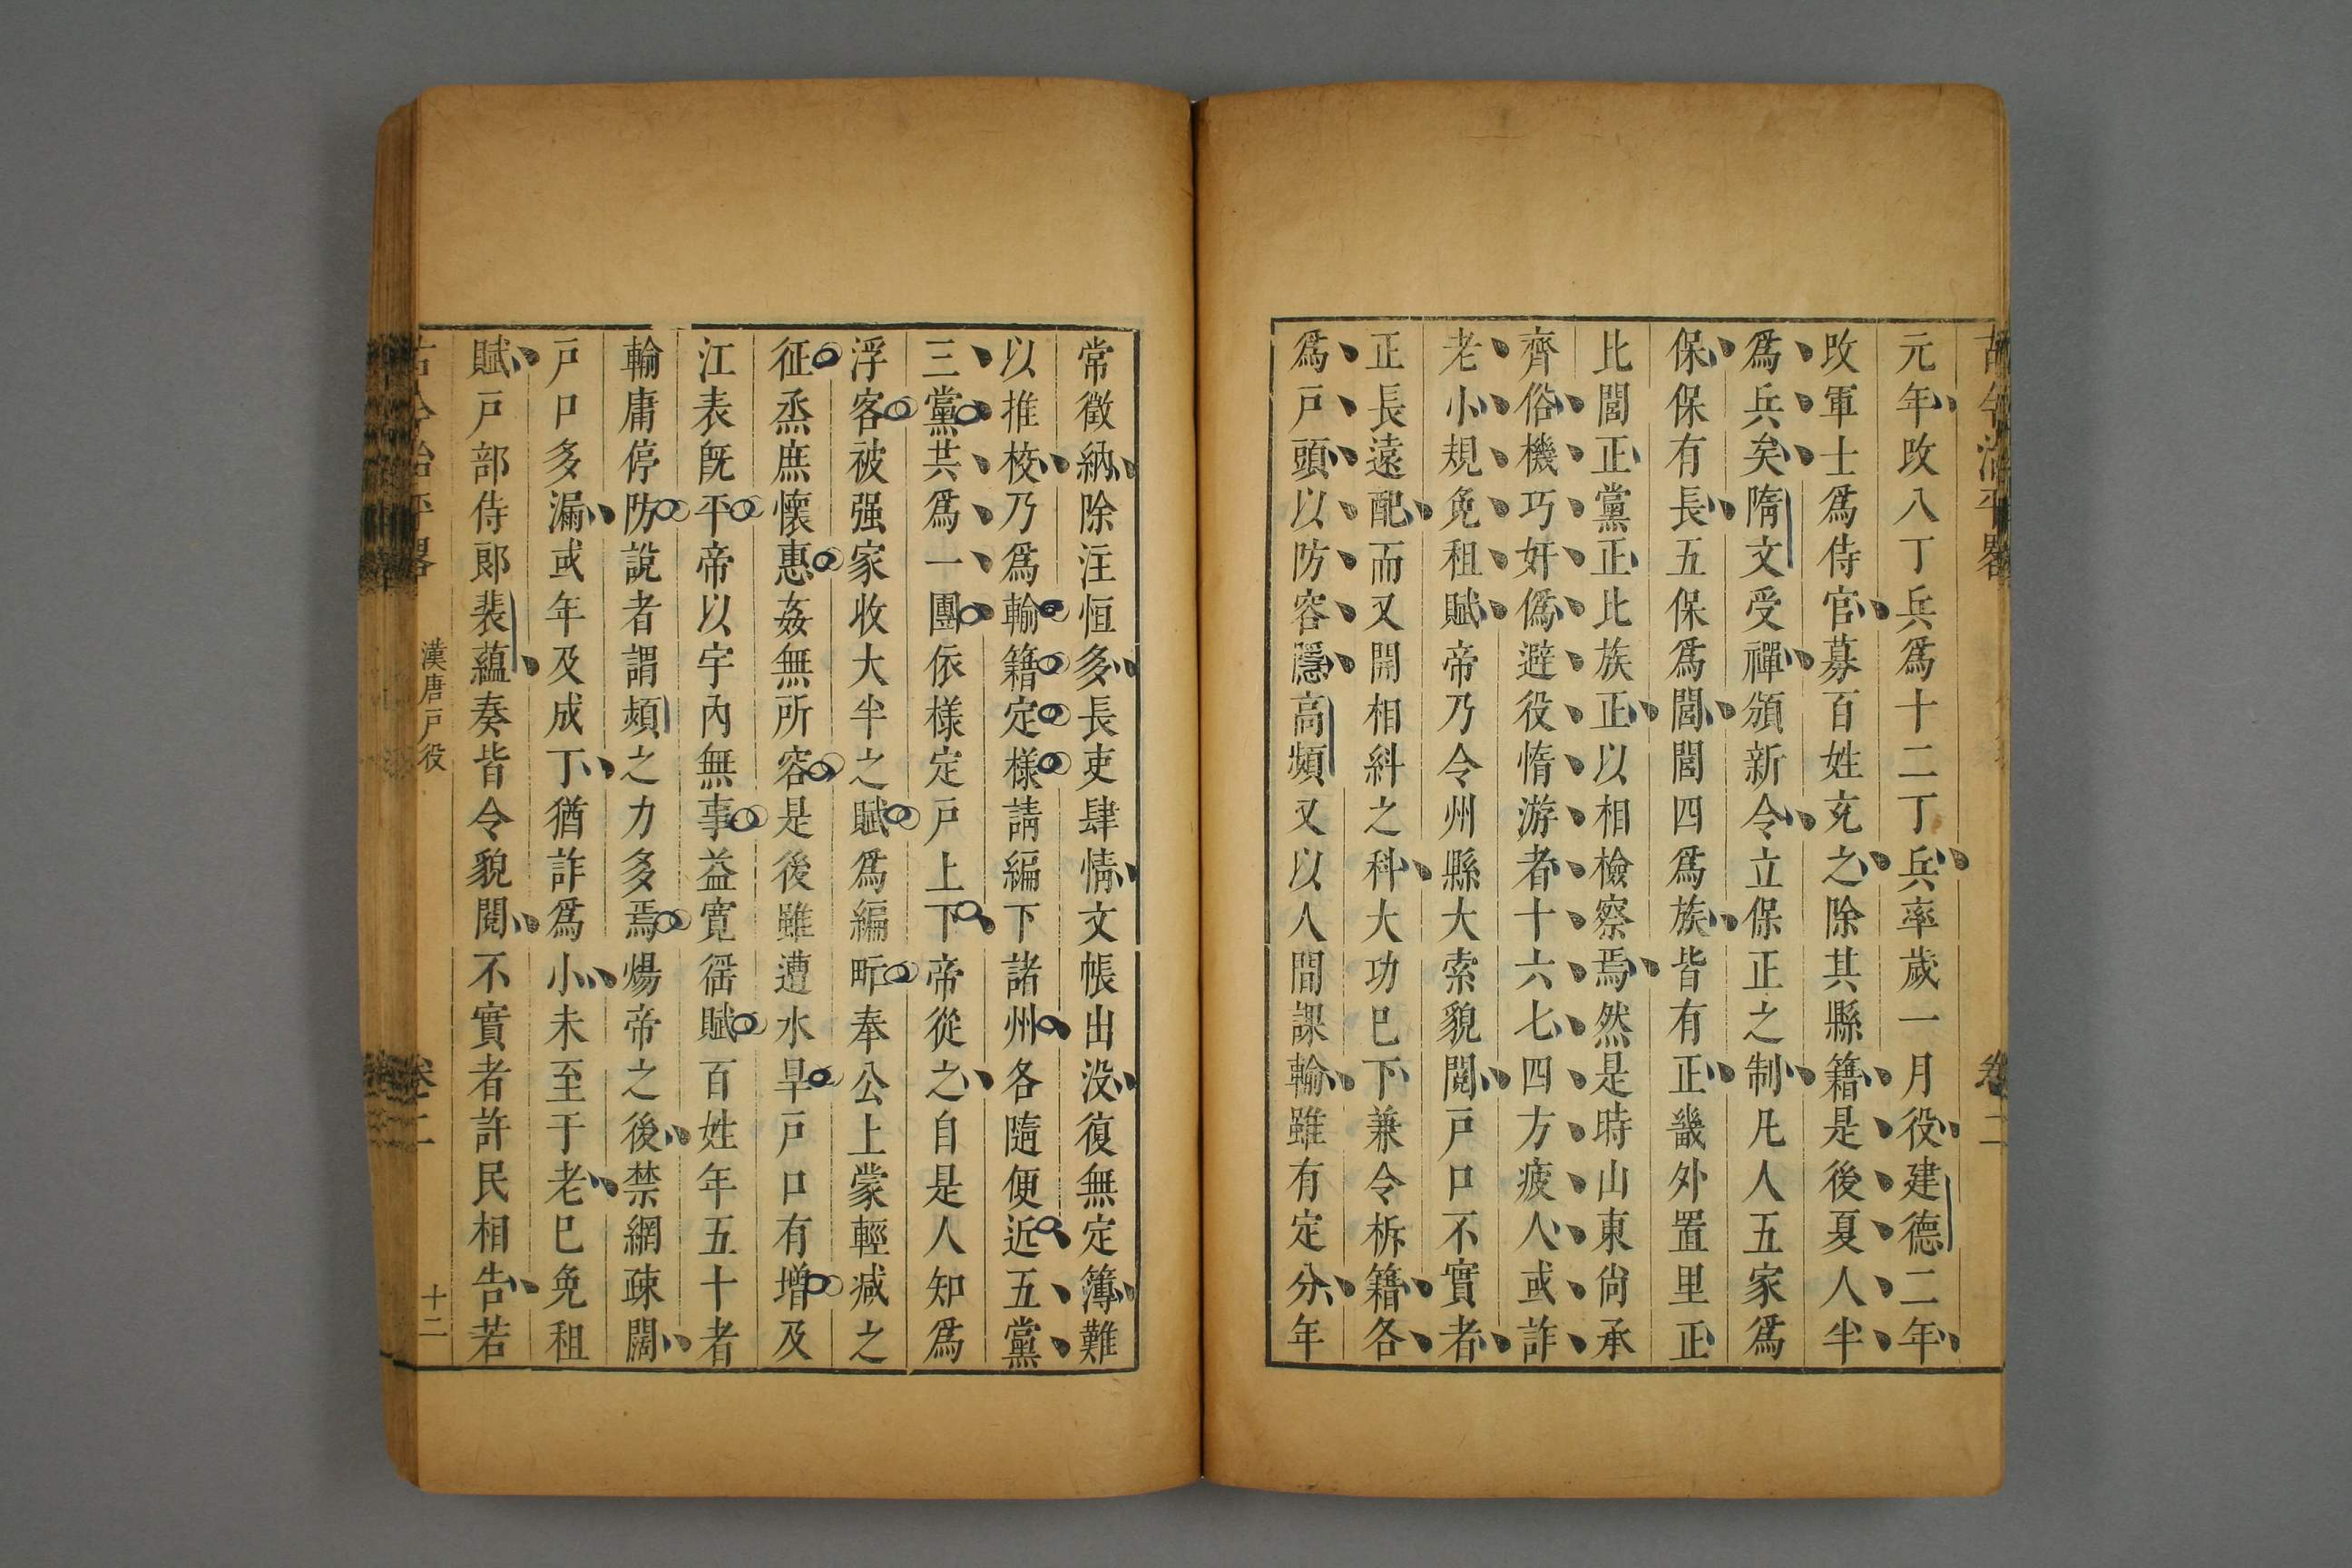 元年攺八丁兵爲十二丁兵率歲一月役建德二年
攺軍士爲侍官募百姓充之除其縣籍是後夏人半
爲兵矣隋文受禪頒新令立保正之制凡人五家爲
保保有長五保爲閭閭四爲族皆有正畿外置里正
比閭正黨正比族正以相檢察焉然是時山東尙承
齊俗機巧奸僞避役惰游者十六七四方疲人或詐
老小規免租賦帝乃令州縣大索貌閱戸口不實者
正長遠配而又開相糾之科大功巳下兼令析籍各
爲戸頭以防容隱高熲又以人間課輸雖有定分年
常徵納除注恒多長吏肆情文帳出没復無定簿難
以推校乃爲輸籍定樣請編下諸州各隨便近五黨
三黨共爲一團依樣定戸上下帝從之自是人知爲
浮客被强家收大半之賦爲編甿奉公上蒙輕减之
征烝庶懷惠姦無所容是後雖遭水旱戸口有增及
江表旣平帝以宇內無事益寛徭賦百姓年五十者
輸庸停防說者謂熲之力多焉煬帝之後禁網疎闊
戸口多漏或年及成丁猶詐爲小未至于老巳免租
賦戸部侍郎裴藴奏皆令貌閱不實者許民相告若
古今治平畧 漢唐戸役 卷二 十二